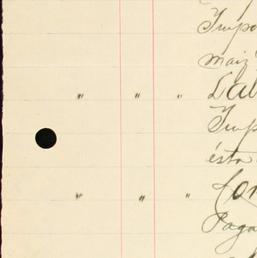 Impo
maiz
" " " Lab
Imp
ésta
" " " Con
Paga